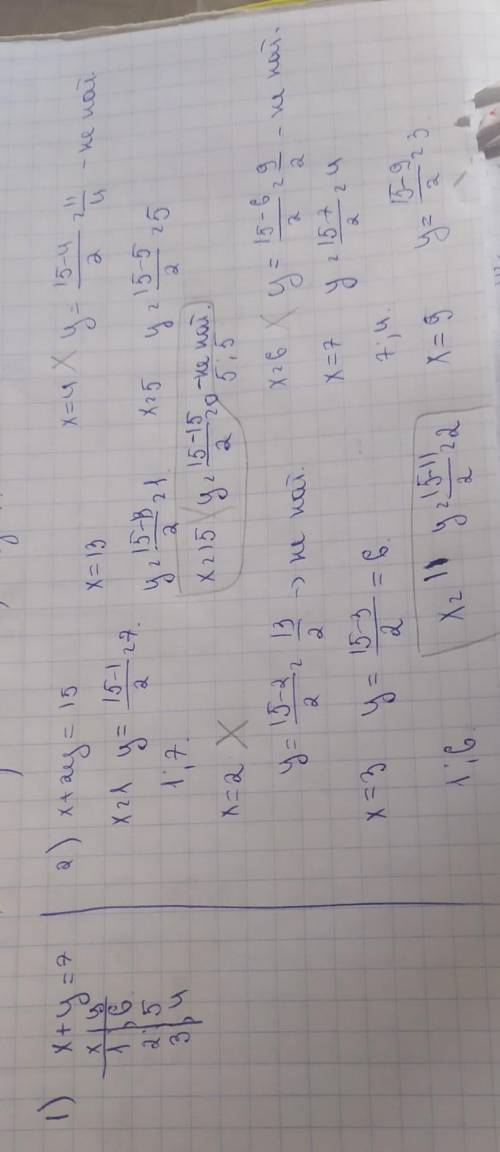 1) x + y = 7
x | y
1 | 6
2 ; 5
3 | 4
2) x + 2y = 15
x = 1 y = \frac{15-1}{2} = 7.
1 ; 7.
x = 2 ×
y = \frac{15-2}{2} = \frac{13}{2} → не нат.
x = 3 y = \frac{15-3}{2} = 6.
1 ; 6.
x = 13
y = \frac{15-13}{2} = 1
x = 15 × y = \frac{15-15}{2} = 0 - не нат.
x = 11 y = \frac{15-11}{2} = 2
x = 4 × y = \frac{15-4}{2} = \frac{11}{4} - не нат.
x = 5 y = \frac{15-5}{2} = 5
5 ; 5
x = 6 × y = \frac{15-6}{2} = \frac{9}{2} - не нат.
x = 7 y = \frac{15-7}{2} = 4
7 ; 4.
x = 9 y = \frac{15-9}{2} = 3